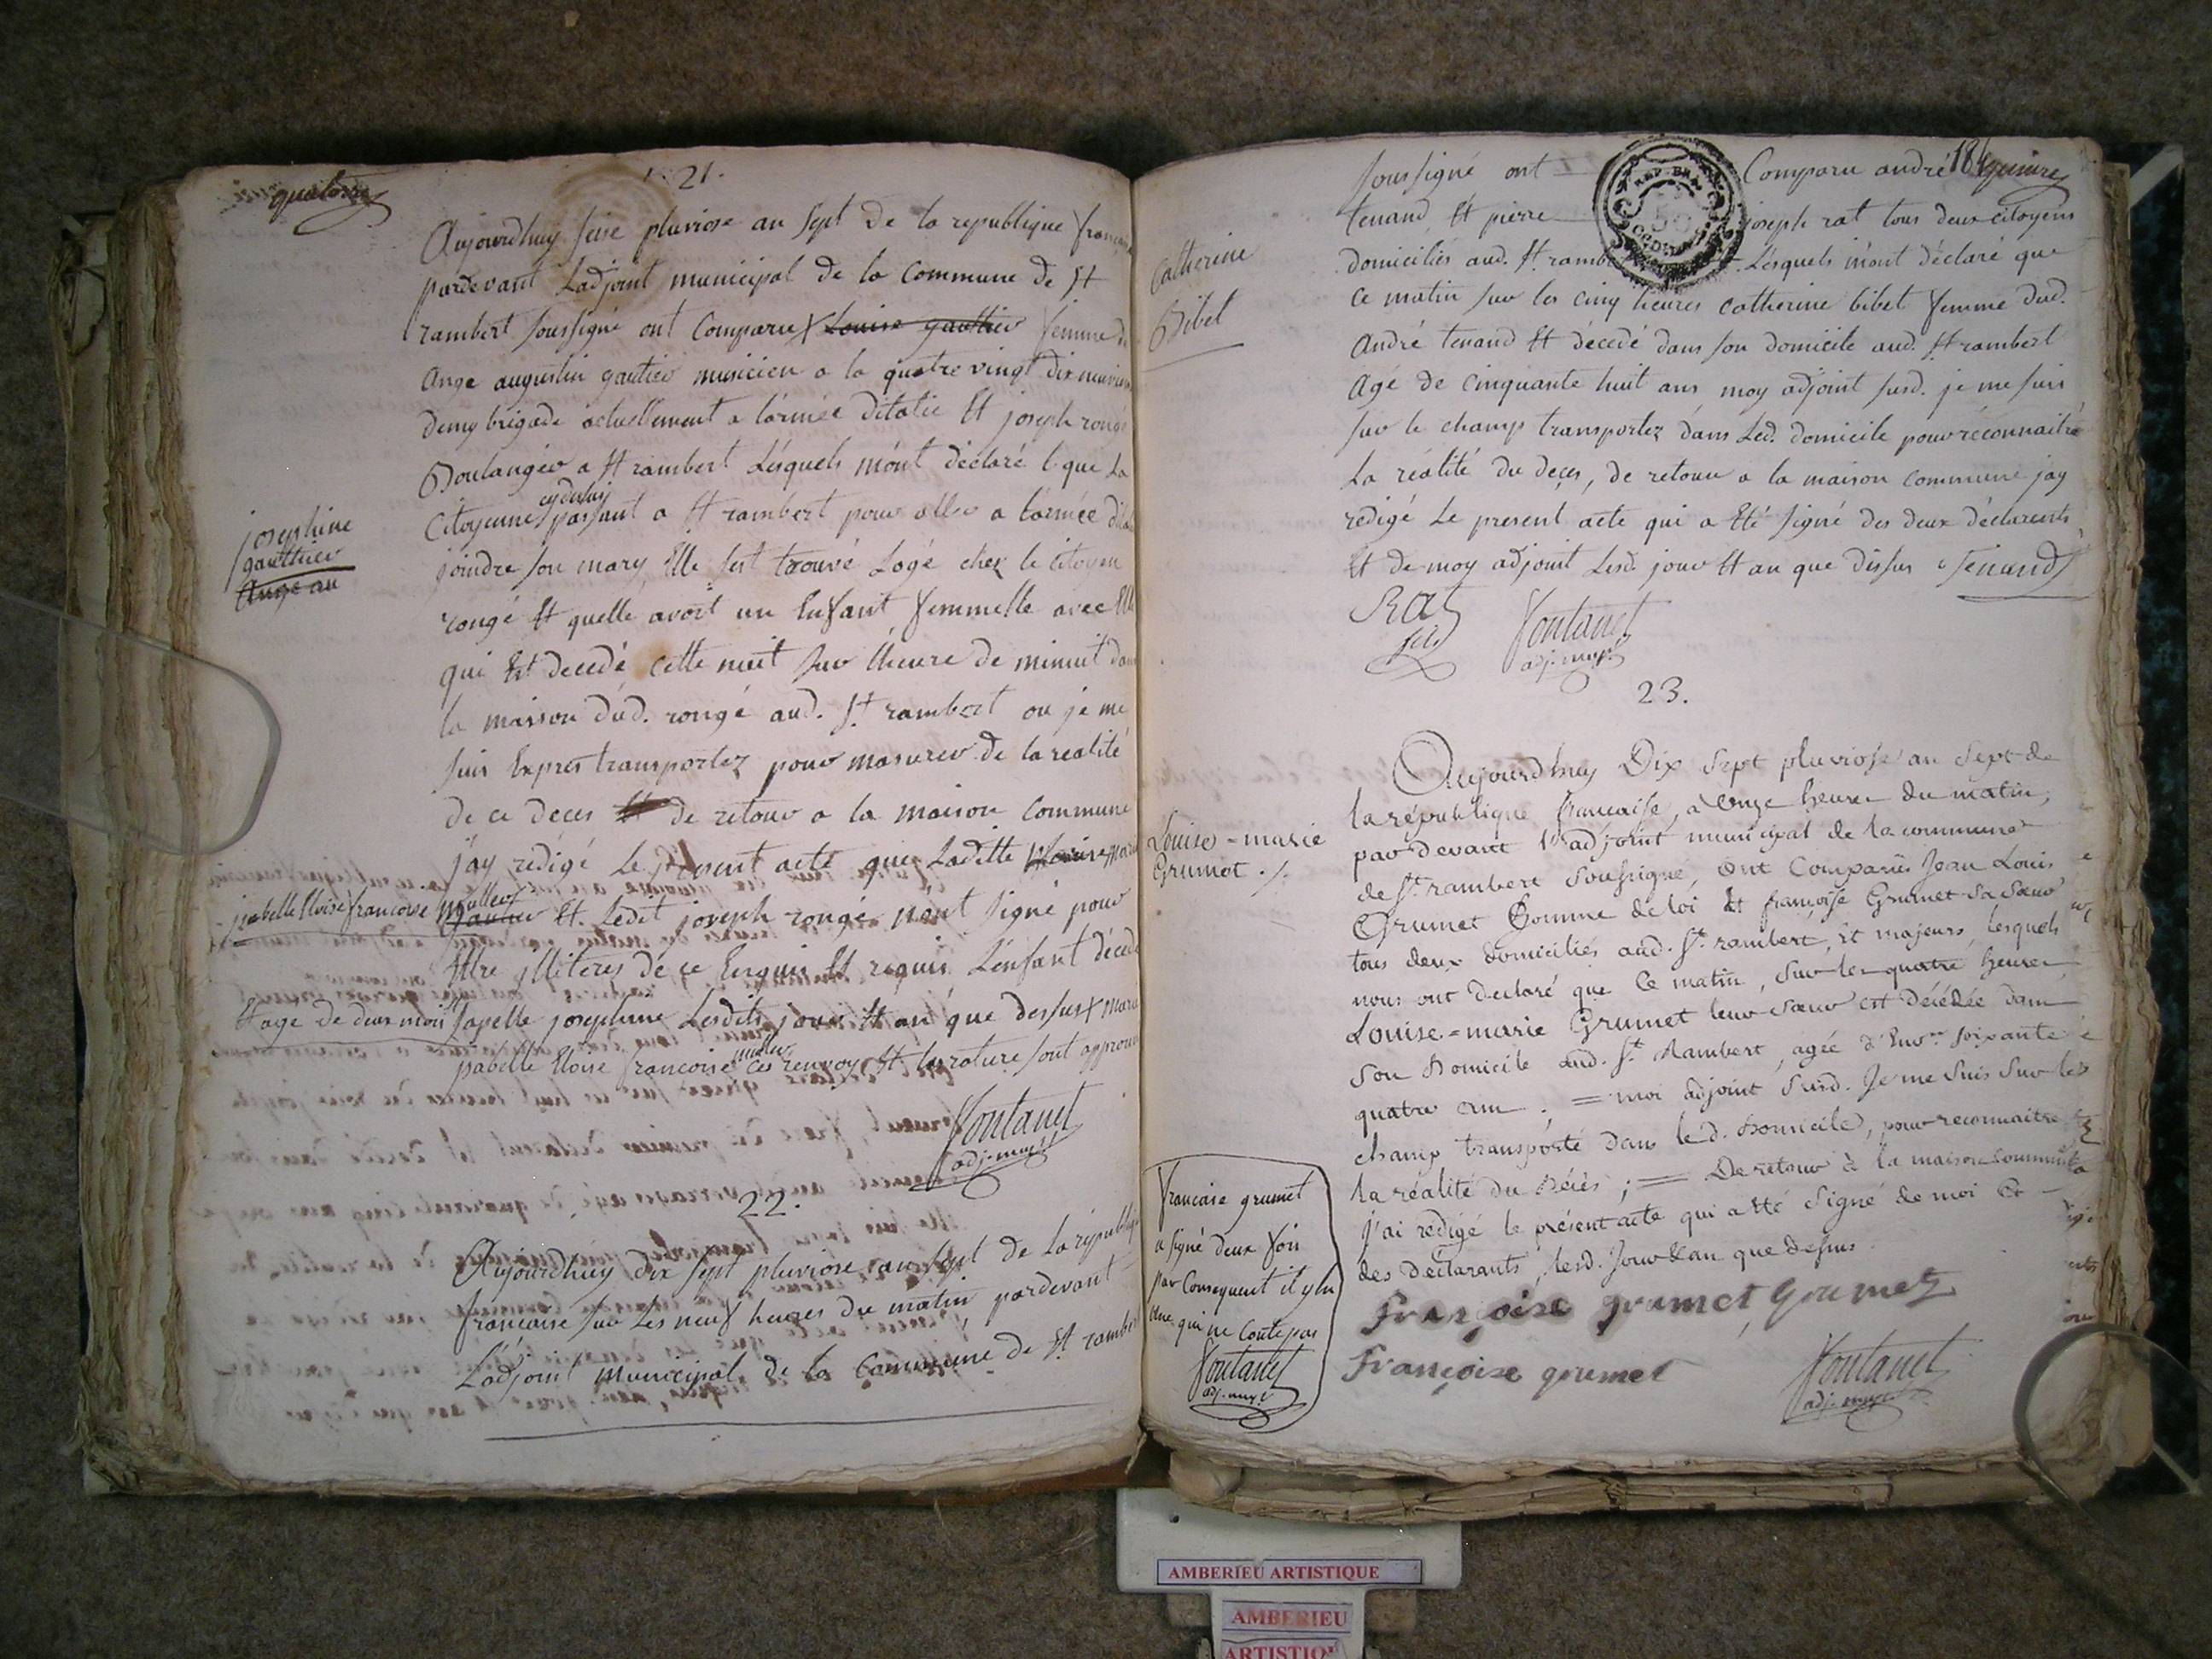 quatorze
21.
Aujourdhuy seise pluviose an sept de la republique francaise
pardevant Ladjoint municipal de la commune de St
rambert soussigné ont comparu X Louise gauthier femme de
ange augustin gautier musicien a la quatre vingt dix neuvieme
demy brigade actuellement a l'armée ditalie Et joseph rongé
Boulanger a St rambert Lesquels m'ont déclaré que La
Citoyenne cy dessus passant a St rambert pour aller a l'armée ditalie
joindre son mary Elle sest trouvé Logé chez le citoyen
rongé Et quelle avoit un Enfant femmelle avec Elle
qui Est decedé cette nuit sur lheure de minuit dans
la maison dud. rongé aud. St rambert ou je me
suis Expres transportez pour masurer de la realité
de ce deces Et de retour a la maison commune
j'ay redigé Le present acte que Laditte Marie
isabelle Eloise francoise muller gautier Et Ledit joseph rongé n'ont signé pour
Ettre illiteres de ce Enquis Et requis L'enfant décedé
Et age de deux mois sapelle josephine Lesdits jour Et an que dessus X marie
isabelle Eloise francoise muller ces renvoy Et la rature sont approuvé
fontanet
adj. mupl
josephine
gauthier
Ange au
22.
Aujourdhuy dix sept pluviose an sept de La république
francaise sur Les neuf heures du matin pardevant
L'adjoint municipal de la Commune de St rambert
184 quinze
soussigné ont Comparu andré
tenand Et pierre joseph rat tous deux citoyens
domiciliés aud. St rambert Lesquels m'ont déclaré que
ce matin sur les cinq heures catherine bibet femme dud.
André tenand Et décedé dans son domicile aud. St rambert
Agé de cinquante huit ans moy adjoint susd. je me suis
sur le champ transportez dans Led. domicile pour réconnaitre
La réalité du deces, de retour a la maison commune jay
redigé Le present acte qui a Eté signé des deux déclarents
Et de moy adjoint Lesd. jour Et an que dessus Tenand
Rat
fontanet
adj. mupl
Catherine
Bibet
23.
Aujourdhuy Dix sept pluviose an sept de
la république francaise, a Onze heures du matin,
par devant l'adjoint municipal de la commune
de St rambert soussigné, ont Comparus Jean Louis
Grumet homme de loi Et françoise Grumet sa sœur
tous deux domiciliés aud. St rambert, et majeurs, Lesquels
nous ont declaré que Ce matin, sur les quatre heures
Louise-marie Grumet leur sœur est décédée dans
son domicile aud. St Rambert, agée d'Env.on soixante
quatre ans; = moi adjoint susd. Je me suis sur les
champ transporté dans led. domicile, pour reconnaitre
la réalité du décès; = De retour à la maison commune
j'ai redigé le présent acte qui a Eté signé de moi Et
des déclarants, lesd. Jour & an que dessus
Louise-marie
Grumet ./.
françoise grumet Grumet
françoise grumet
fontanet
adj. mupl
francoise grumet
a signé deux fois
par Consequent il y En a
Une qui ne Conte pas
fontanet
adj. mupl
AMBERIEU ARTISTIQUE
AMBERIEU
ARTISTIQU